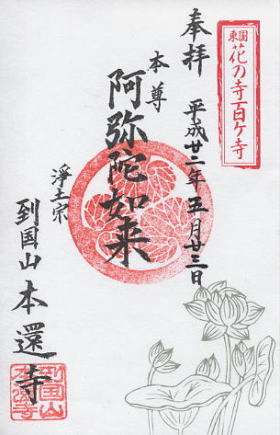 東国花の寺百ケ寺
奉拝
平成廿二年五月廿三日
本尊
阿弥陀如来
浄土宗
到国山
本還寺